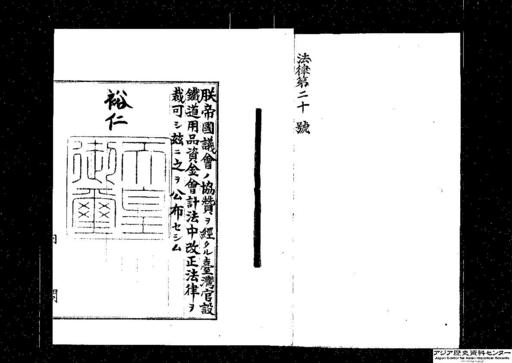 法律第二十號
朕帝國議會ノ協贊ヲ經タル臺灣官設
鐵道用品資金會計法中改正法律ヲ
裁可シ玆ニ之ヲ公布セシム
裕仁
天皇御璽
アジア歴史資料センター
Japan Center for Asian Historical Records